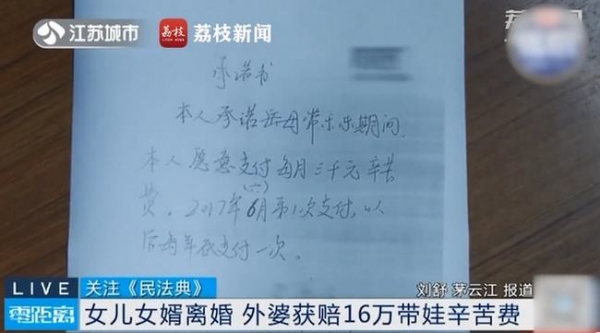 江苏城市 荔枝 荔枝新闻
承诺书
本人承诺岳母带乐乐期间,
本人愿意支付每月三千元辛苦
费,2017年6月第1次支付,以
(六)
后每年夜支付一次。
LIVE 关注《民法典》 刘舒 茅云江 报道
零距离 女儿女婿离婚 外婆获赔16万带娃辛苦费